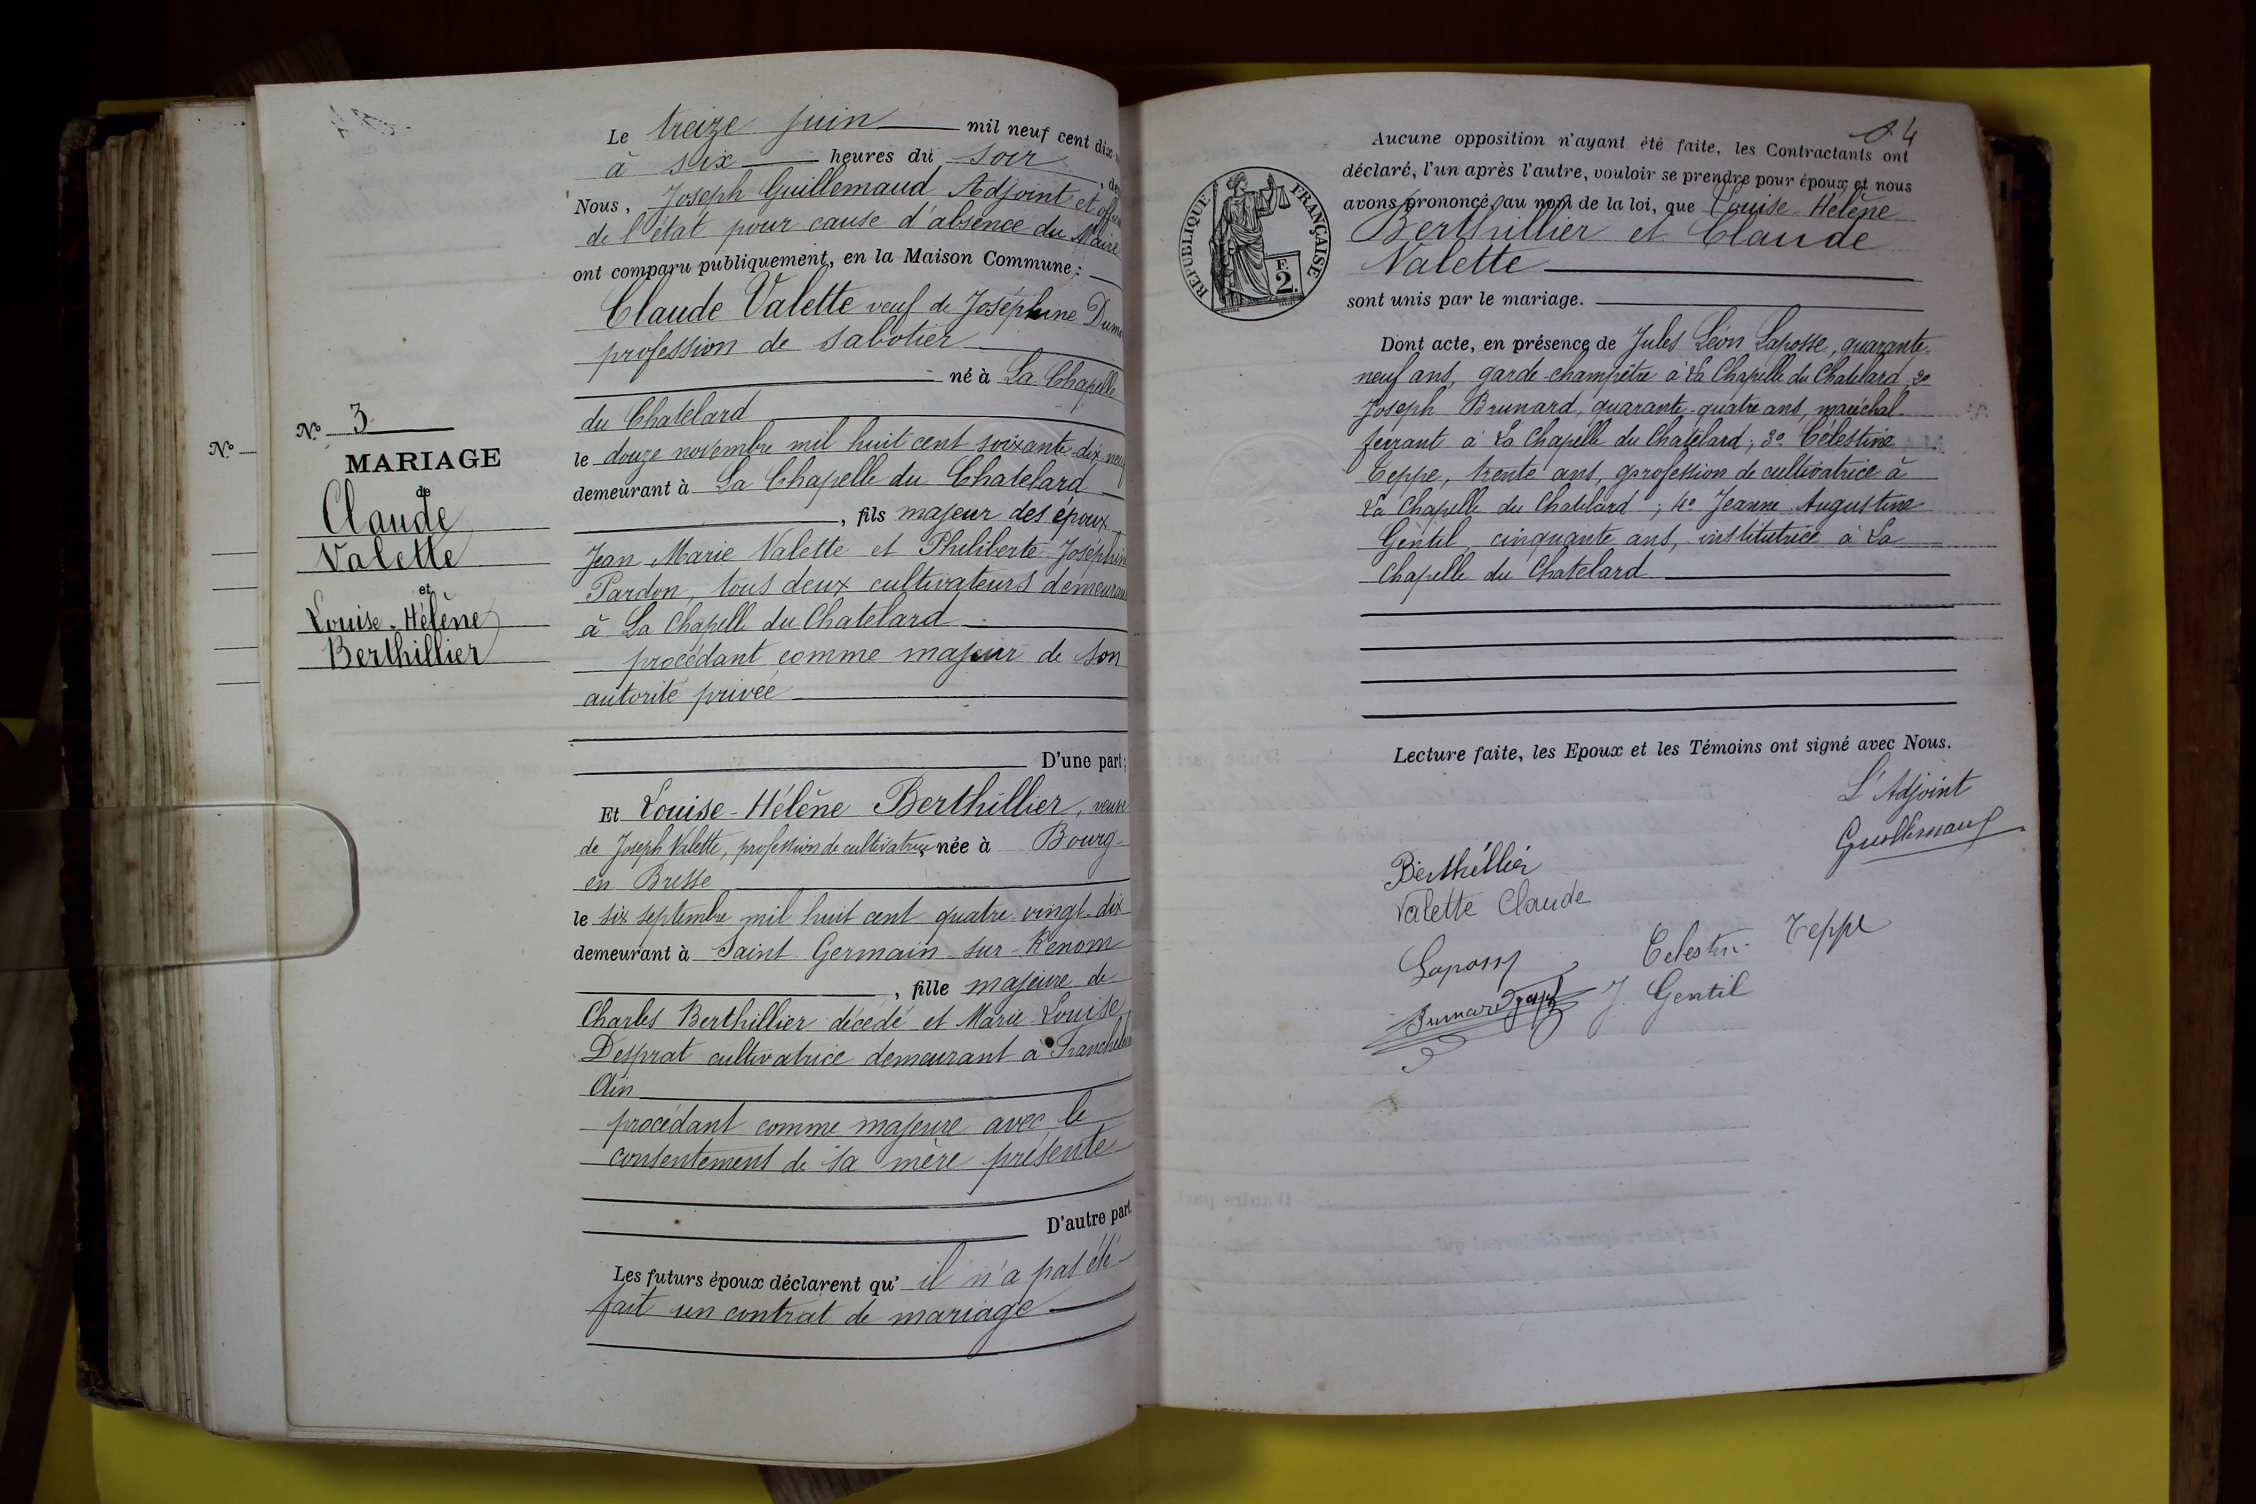 Le treize juin mil neuf cent dix
à six heures du soir
Nous, Joseph Guillemaud Adjoint et
de l'état pour cause d'absence du Maire
ont comparu publiquement, en la Maison Commune :
Claude Valette veuf de Joséphine
profession de sabotier
né à La Chapelle
du Chatelard
le douze novembre mil huit cent soixante dix neuf
demeurant à La Chapelle du Chatelard
, fils majeur des époux
Jean Marie Valette et Philiberte Joséphine
Pardon, tous deux cultivateurs demeurant
à La Chapelle du Chatelard
procédant comme majeur de son
autorité privée
D'une part ;
Et Louise-Hélène Berthillier, veuve
de Joseph Valette, profession de cultivatrice née à Bourg-
en Bresse
le six septembre mil huit cent quatre vingt dix
demeurant à Saint Germain sur Renom
, fille majeure de
Charles Berthillier décédé et Marie Louise
Desprat cultivatrice demeurant à
Ain
procédant comme majeure avec le
consentement de sa mère présente
D'autre part
Les futurs époux déclarent qu' il n'a pas été
fait un contrat de mariage
N°
N° 3
MARIAGE
de
Claude
Valette
et
Louise-Hélène
Berthillier
4
Aucune opposition n'ayant été faite, les Contractants ont
déclaré, l'un après l'autre, vouloir se prendre pour époux et nous
avons prononcé, au nom de la loi, que Louise-Hélène
Berthillier et Claude
Valette
sont unis par le mariage.
RÉPUBLIQUE FRANÇAISE
F.
2.
Dont acte, en présence de Jules Léon Laposse, quarante-
neuf ans, garde-champêtre à La Chapelle du Chatelard, 2°
Joseph Brunard, quarante-quatre ans, maréchal-
ferrant à La Chapelle du Chatelard ; 3° Célestine
Teppe, trente ans, profession de cultivatrice à
La Chapelle du Chatelard ; 4° Jeanne Augustine
Gentil, cinquante ans, institutrice à La
Chapelle du Chatelard
Lecture faite, les Epoux et les Témoins ont signé avec Nous.
L'Adjoint
Guillemaud
Berthillier
Valette Claude
Laposse
Celestine Teppe
Brunard Joseph
J. Gentil